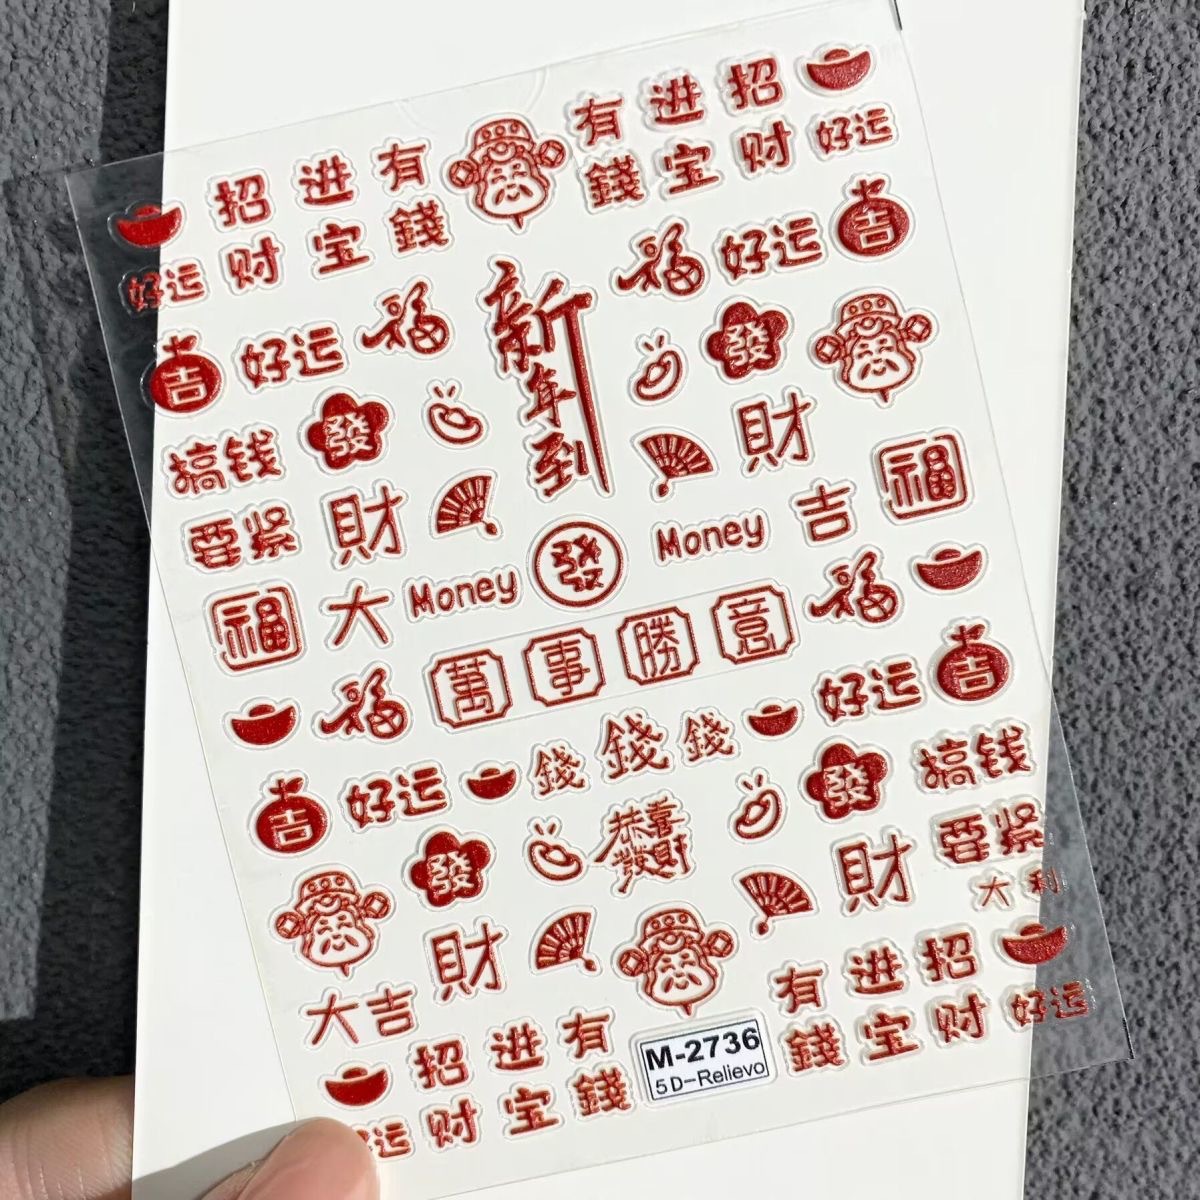 招 进 有
财 宝 錢
好运
有 进 招
錢 宝 财
好运
福
好运
吉
吉
好运
福
新年到
發
發
搞钱
要紧
財
財
福
福
大
Money
發
Money
吉
萬 事 勝 意
福
福
好运
吉
錢 錢 錢
吉
好运
發
恭喜
發財
發
搞钱
要紧
大 利
財
財
大吉
招 进 有
财 宝 錢
好运
M-2736
5D-Relievo
有 进 招
錢 宝 财
好运